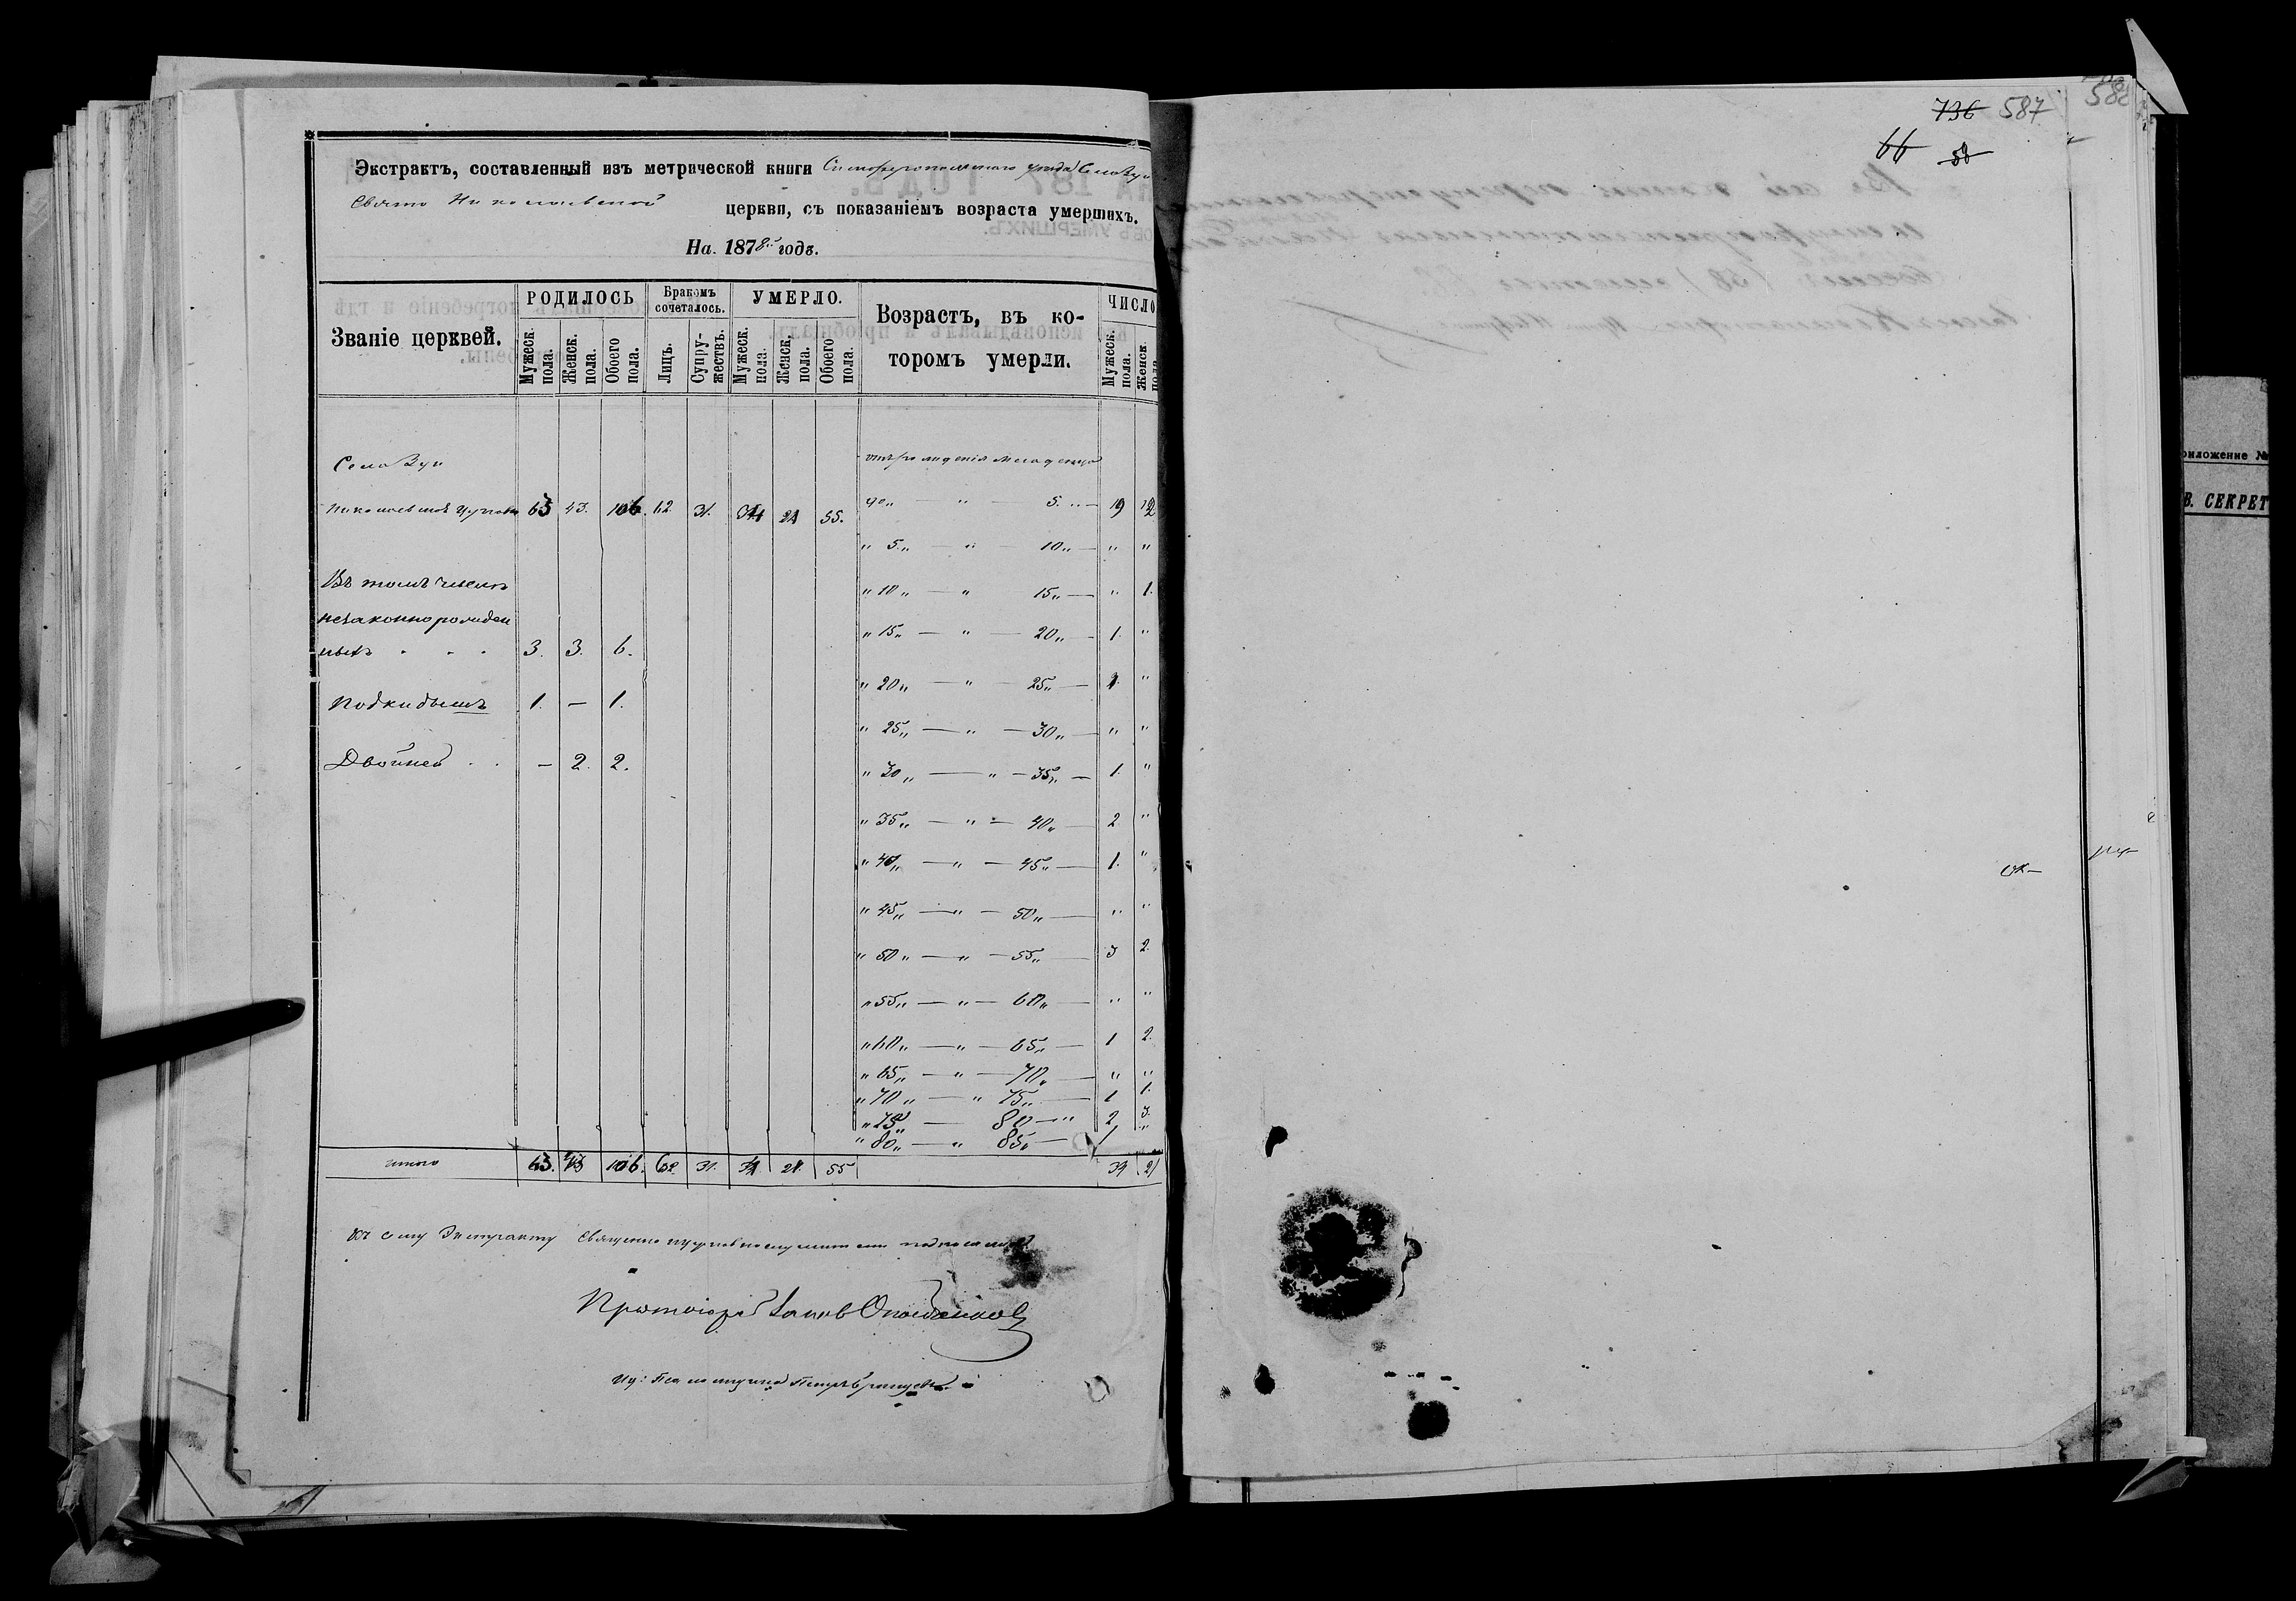 Экстрактъ, составленный изъ метрической книги Симферопольскаго уѣзда Села Зуи
Свято Николаевской церкви, съ показаніемъ возраста умершихъ.
На 1878й годъ.
Званіе церквей. РОДИЛОСЬ Бракомъ сочеталось. УМЕРЛО. Возрастъ, въ которомъ умерли. ЧИСЛО
Мужеск. пола. Женск. пола. Обоего пола. Лицъ. Супружествъ. Мужеск. пола. Женск. пола. Обоего пола. Мужеск. пола. Женск. пола
Села Зуи отъ рожденія младенцевъ
Николаевской Церкви 63 43. 106. 62 31. 34 21 55. до „ — „ — 5 „ — 19 12
„ 5 „ — „ — 10 „ — „ „
Въ томъ числѣ „ 10 „ — „ 15 „ — „ 1.
незаконнорожден
ныхъ . . . 3. 3. 6. „ 15 „ — „ — 20 „ — 1. „
Подкидышъ 1. — 1. „ 20 „ — „ — 25 „ — 2. „
„ 25 „ — „ — 30 „ — „ „
Двойней . . — 2. 2. „ 30 „ — „ — 35 „ — 1. „
„ 35 „ — „ — 40 „ — 2 „
„ 40 „ — „ — 45 „ — 1. „
„ 45 „ — „ — 50 „ — „ „
„ 50 „ — „ — 55 „ — 3 2.
„ 55 „ — „ — 60 „ — „ „
„ 60 „ — „ — 65 „ — 1 2.
„ 65 „ — „ — 70 „ — „ „
„ 70 „ — „ 75 „ — 1 1.
„ 75 „ — 80 — „ 2 3.
„ 80 „ — „ 85 „ — 1 „
Итого 63. 43 106. 62. 31. 34 21. 55 34 21
Къ сему Экстракту Священно церковнослужители подписались
Протоіерей Іаковъ
И д: Псаломщика Петръ
736 587
66 58
588
риложение №
В. СЕКРЕТ